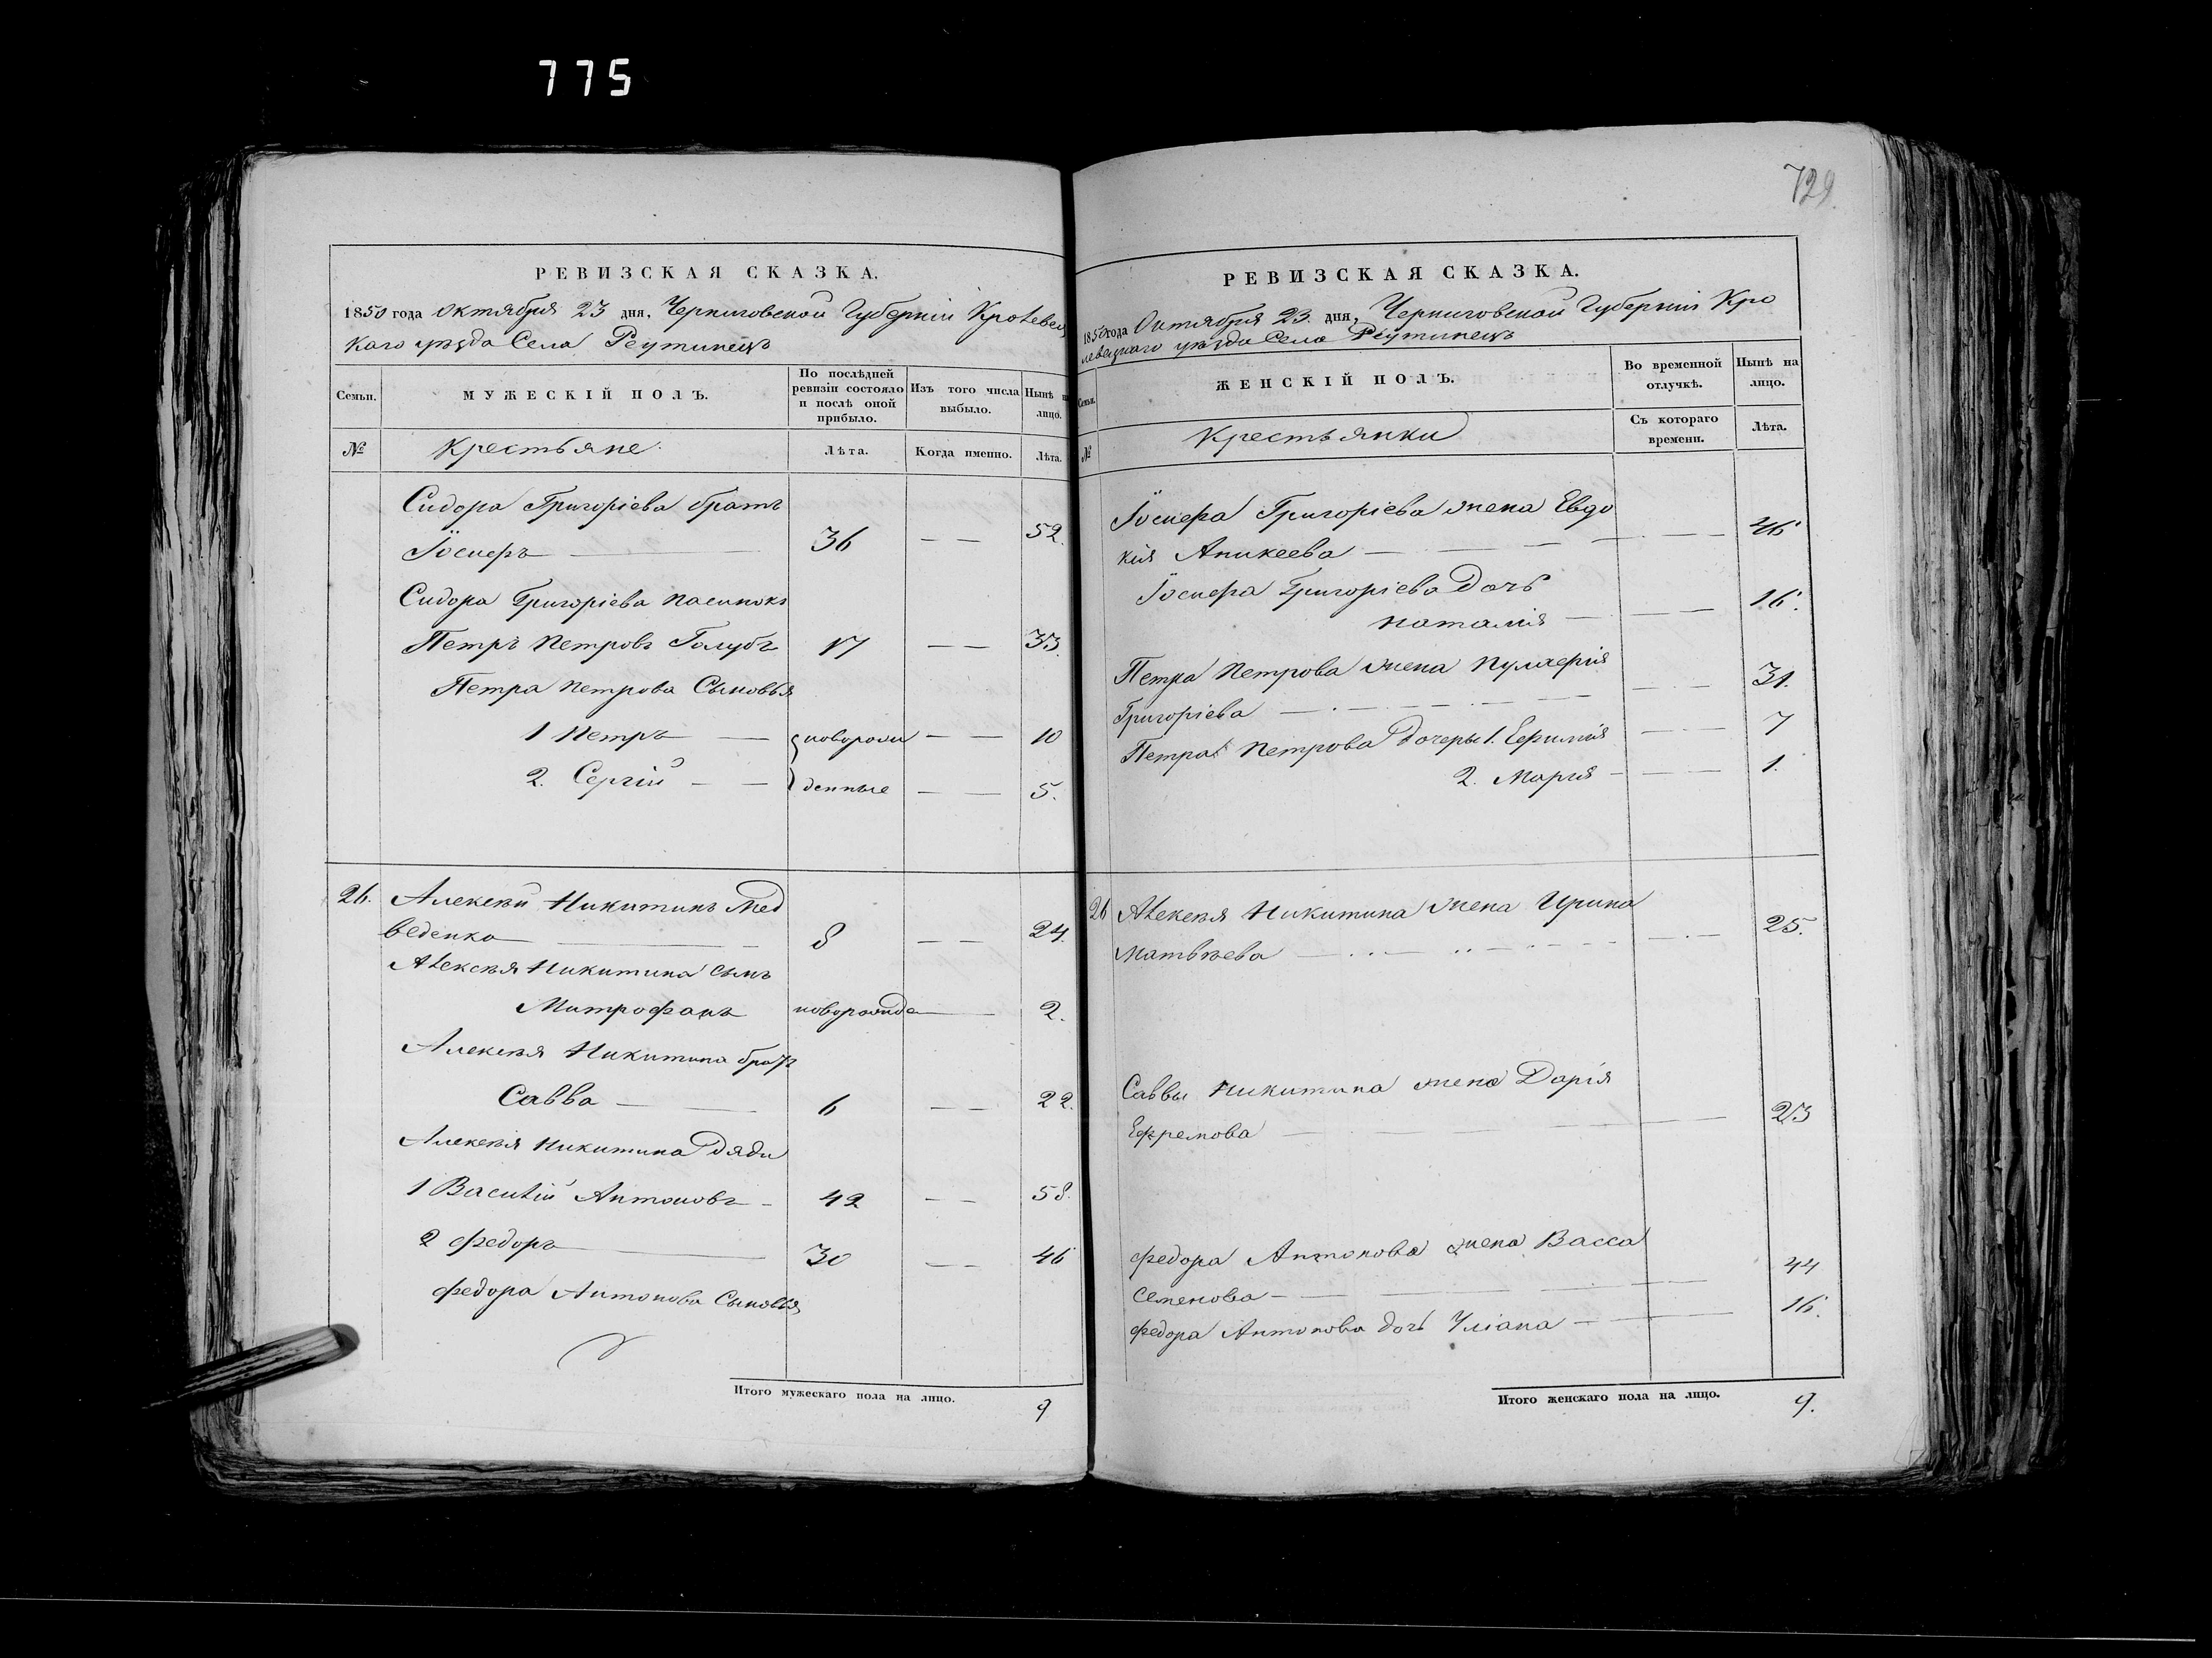 775
729.
РЕВИЗСКАЯ СКАЗКА.
1850 года Октября 23 дня, Черниговской Губерніи Кролевец
каго уѣзда Села Реутинецъ
Семьи.
МУЖЕСКІЙ ПОЛЪ.
По послѣдней ревизіи состояло и послѣ оной прибыло.
Изъ того числа выбыло.
Нынѣ на лицо.
№
Крестьяне
Лѣта.
Когда именно.
Лѣта.
Сидора Григоріева братъ
Іосифъ — 36 — — 52.
Сидора Григоріева пасинокъ
Петръ Петровъ Голубъ 17 — — 33.
Петра Петрова Сыновья
1 Петръ — новорож — — 10
2. Сергій — — денные — — 5.
26. Алексѣй Никитинъ Мед
веденко — 8 — — 24.
Алексѣя Никитина сынъ
Митрофанъ новорожде — 2.
Алексѣя Никитина братъ
Савва — 6 — — 22.
Алексѣя Никитина Дяди
1 Василій Антоновъ - 42 — — 58.
2 Федоръ — 30 — — 46
Федора Антонова Сыновья
Итого мужескаго пола на лицо. 9
РЕВИЗСКАЯ СКАЗКА.
1850 года Октября 23. дня, Черниговской Губерніи Кро
левецкаго уѣзда Села Реутинецъ
Семьи.
ЖЕНСКІЙ ПОЛЪ.
Во временной отлучкѣ.
Нынѣ на лицо.
№
Крестьянки
Съ котораго времени.
Лѣта.
Іосифа Григоріева жена Евдо
кія Аникеева — — 46
Іосифа Григоріева Дочь
Наталія — — — 16.
Петра Петрова жена Пулхерія
Григоріева — — — 31.
Петра Петрова Дочеры 1. Ефимія — — 7
2. Марія — — 1.
26 Алексѣя Никитина жена Ирина
Матвѣева — — — 25.
Саввы Никитина жена Дарія
Ефремова — — 23
Федора Антонова жена Васса
Семенова — — — 44
Федора Антонова дочь Уліана — — 16.
Итого женскаго пола на лицо. 9.